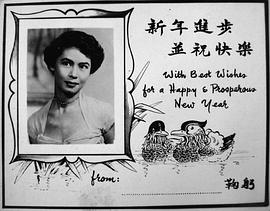 新年進步
並祝快樂
With Best Wishes
for a Happy & Prosperous
New Year
from:
鞠躬